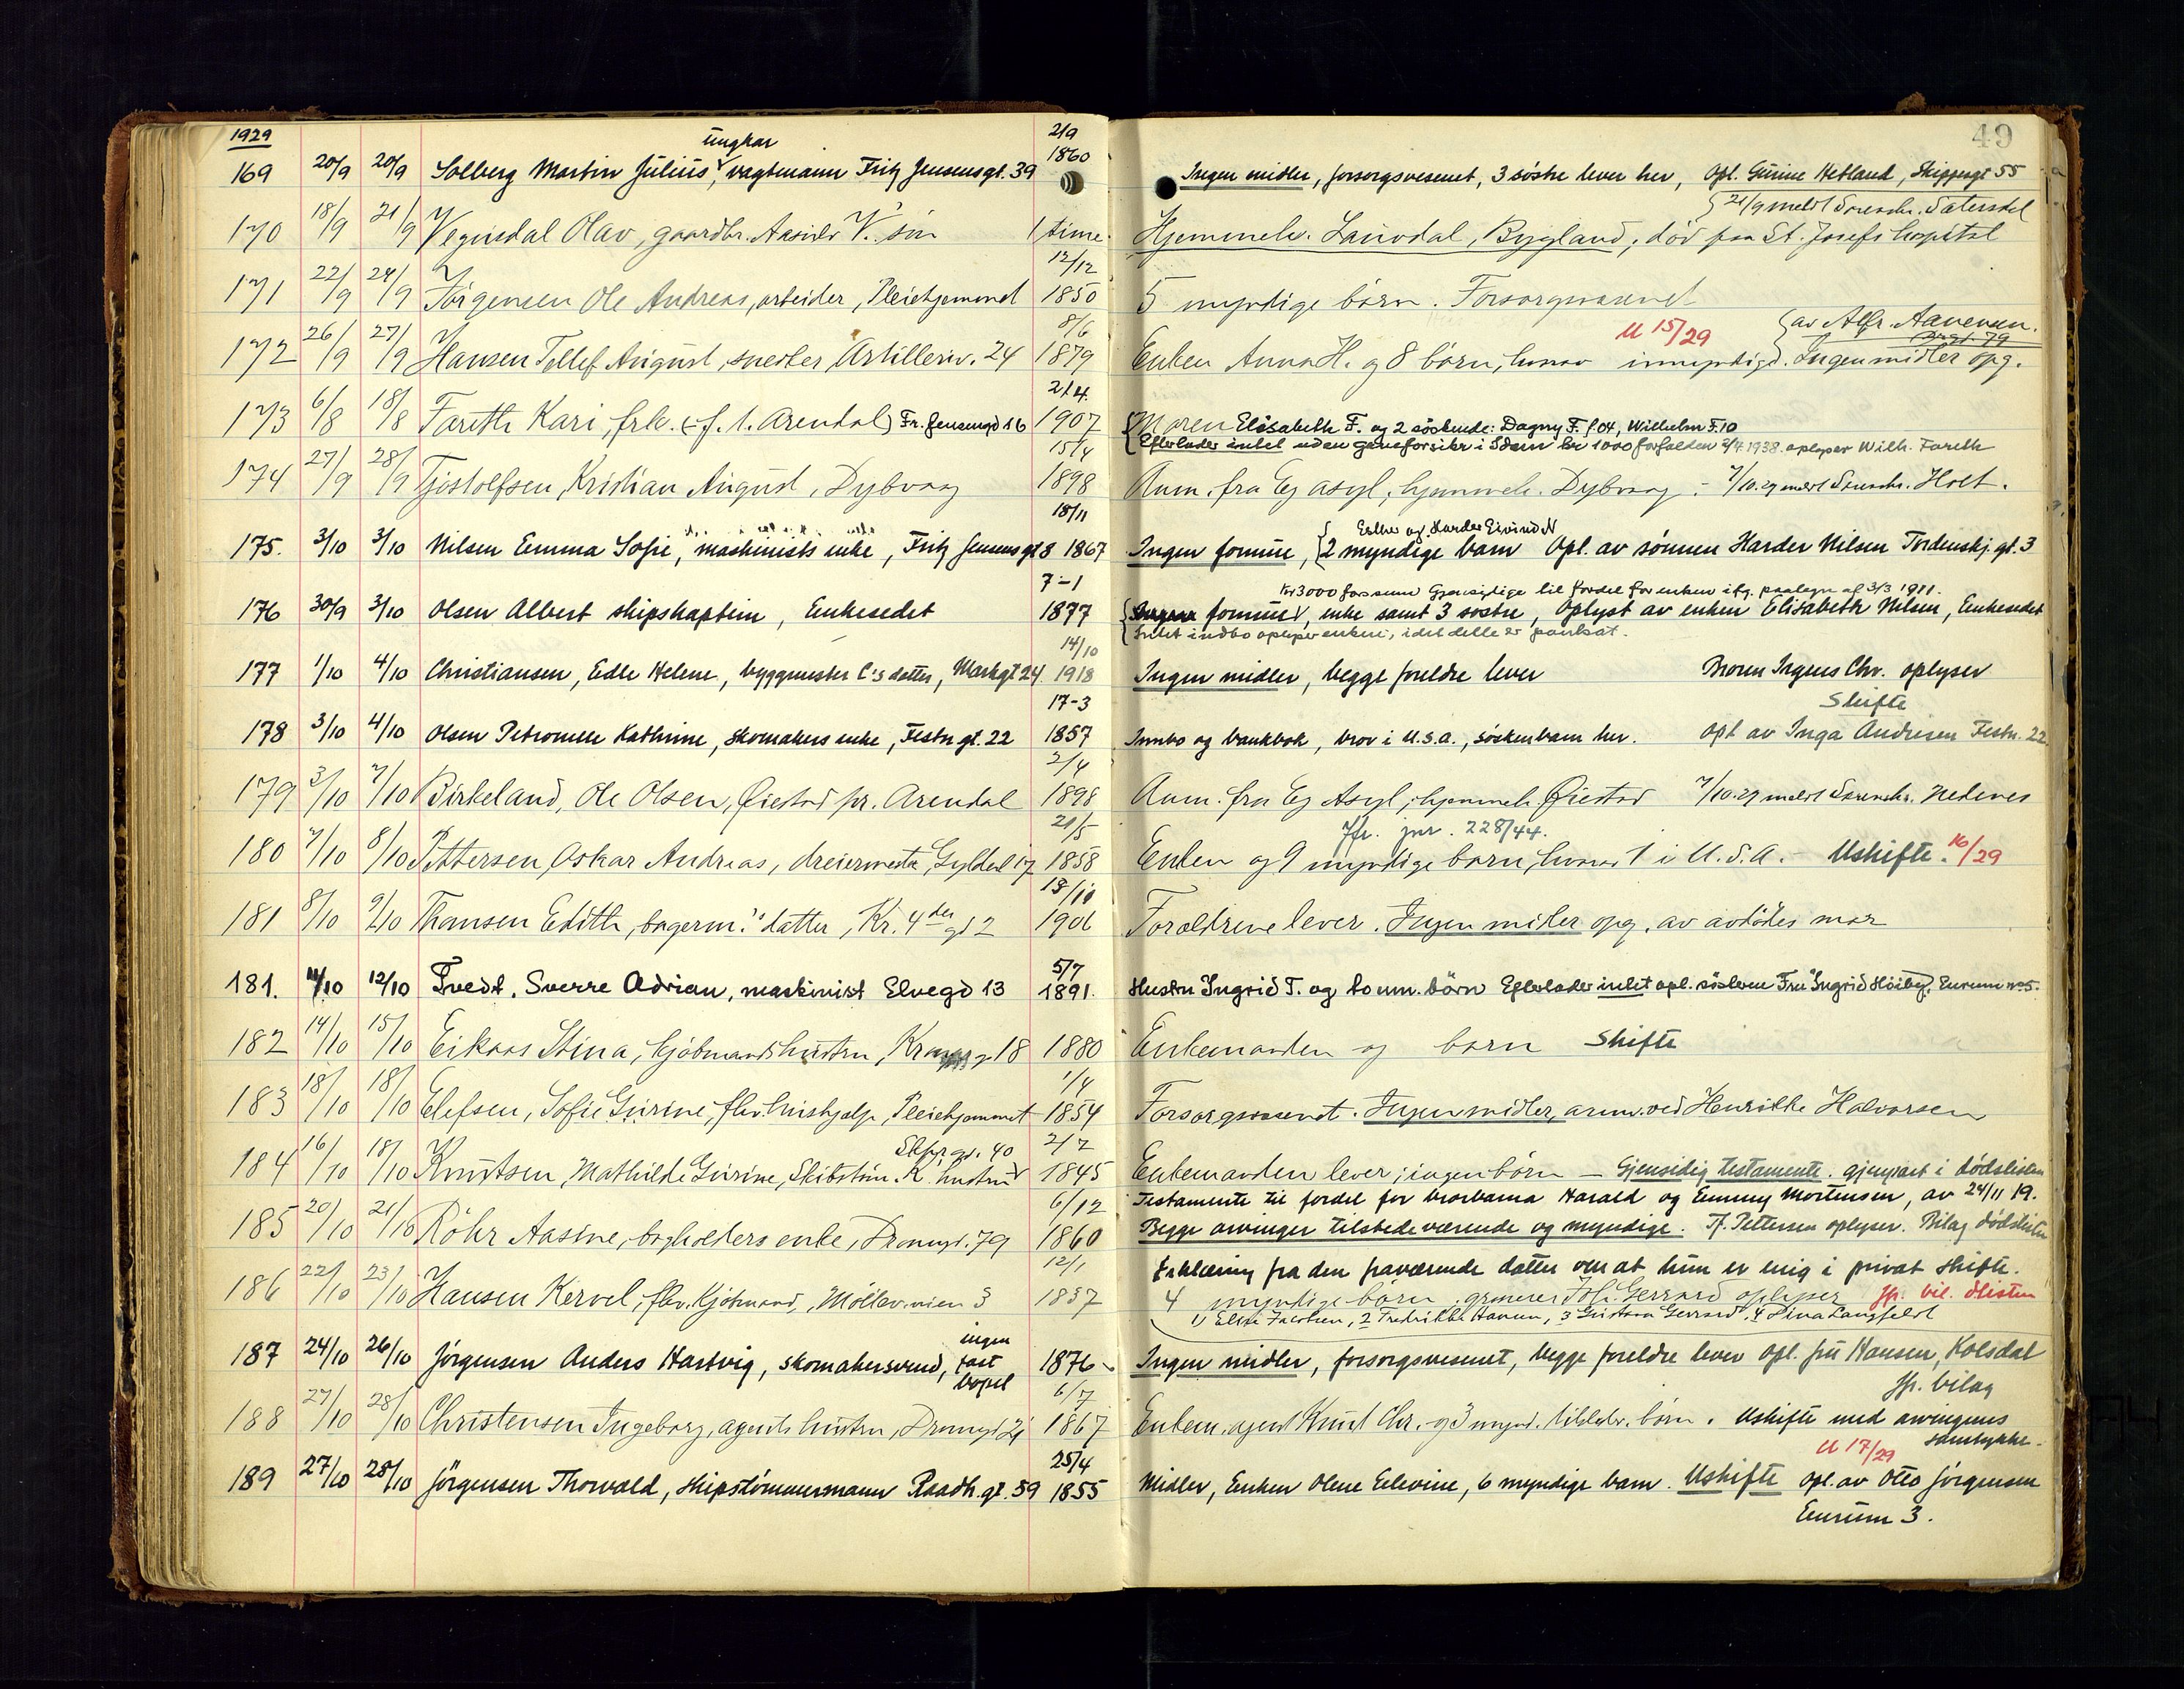 1929
49
169 20/9 20/9 Solberg Martin Julius, ungkar vagtmann Fritz Jensensgt. 39 2/9 1860 Ingen midler, forsorgsvesenet, 3 söstre lever her, Opl. Gurine Hetland, Skippergt 55
21/9 meldt Sorenskr. Sætersdal
170 18/9 21/9 Vegusdal Olav, gaardbr. Aasulv V.'s sön 1 time Hjemmeh. Lauvdal, Bygland, död paa St. Josefs hospital
171 22/9 24/9 Jörgensen Ole Andreas, arbeider, Pleiehjemmet 12/12 1850 5 myndige börn. Forsorgsvæsenet
U 15/29 av Alfr. Aanensen.
172 26/9 27/9 Hansen Tellef August, snedker, Artilleriv. 24 8/6 1879 Enken Anna H. og 8 börn, hvorav umyndige. Ingen midler opg.
173 6/8 18/8 Fareth Kari, frk. (f. i. Arendal) Fr. Jensensgd 16 21/4 1907 Moren Elisabeth F. og 2 söskende: Dagny F. f. 04, Wilhelm F. 10
Efterlader intet uden genseforsikr i Idun kr 1000 forfalden 2/4 1938 oplyser Wilh. Fareth
174 27/9 28/9 Tjostolfsen, Kristian August, Dybvaag 15/4 1898 Anm. fra Eg asyl, hjemmeh. Dybvaag - 7/10.29 meldt Sorenskr. Holt.
Esther og Harder Eivind N
175. 3/10 3/10 Nilsen Emma Sofie, maskinists enke, Fritz Jensensgt 8 18/11 1867 Ingen formue, 2 myndige barn Opl. av sönnen Harder Nilsen Tordenskj. gt. 3
Kr 3000 forsikr Gjensidige til fordel for enken ifg. paategn af 3/3 1911.
176 30/9 3/10 Olsen Albert skipskaptein, Enkesedet 7-1 1877 Ingen formue, enke samt 3 söstre, Oplyst av enken Elisabeth Nilsen, Enkesedet
Intet indbo oplyser enken, idet dette er pantsat.
177 1/10 4/10 Christiansen, Edle Helene, byggmester C's datter, Markgt 24 14/10 1918 Ingen midler, begge foreldre lever Broren Chr. oplyser
Skifte
178 3/10 4/10 Olsen Petronelle Kathrine, skomakers enke, Festn gt. 22 17-3 1857 Innbo og bankbok, bror i U.S.A., söskenbarn her. Opl av Inga Andresen Festn. 22
179 3/10 7/10 Birkeland, Ole Olsen, Øiestad pr. Arendal 2/4 1898 Anm. fra Eg Asyl, hjemmeh. Øiestad 7/10.29 meldt Sorenskr. Nedenes
Jfr. jnr. 228/44.
180 7/10 8/10 Pettersen, Oskar Andreas, dreiermester, Gyldenl 17 21/5 1858 Enken og 9 myndige börn, hvorav 1 i U.S.A. - Uskifte. 16/29
181 8/10 9/10 Thomsen Edith, bagerm.'s datter, Kr. 4des gt 2 1906 Forældrene lever. Ingen midler opg. av avdödes mor
181. 11/10 12/10 Tvedt, Sverre Adrian, maskinist Elvegd 13 5/7 1891. Hustru Ingrid T. og to um. börn Efterlader intet opl. sösteren Fru Ingrid Höiby, Enrum no 5.
182 14/10 15/10 Eikaas Stina, kjöbmandshustru, 18 1880 Enkemanden og börn Skifte
183 18/10 18/10 Elefsen, Sofie Gurine, fhv. hushjælp, Pleiehjemmet 1/4 1854 Forsorgsvæsenet. Ingen midler, anm. ved Henrikke Halvorsen
184 16/10 18/10 Knutsen, Mathilde Gurine, Skibstöm. K. hustru Skprgt. 40 2/2 1845 Enkemanden lever; ingen börn - Gjensidig testamente. gjenpart i dödslisten
Testamente til fordel for brorbarna Harald og Emmy Mortensen, av 24/11 19.
185 20/10 21/10 Röhr Aasine, bogholders enke, Dronngt. 79 6/12 1860 Begge arvinger tilstedeværende og myndige. Pettersen oplyser. Bilag dödslisten
Erklæring fra den fraværende datter om at hun er enig i privat skifte.
186 22/10 23/10 Hansen Kervel, fhv. kjöbmand, Möllevnien 3 12/1 1837 4 myndige börn. Joh. Gerrard oplyser Jfr. bil. dlisten
1) Elise Jacobsen, 2 Fredrikke Hansen, 3 Gustava Gerrard, 4 Lina Langfeldt
187 24/10 26/10 Jörgensen Anders Hartvig, skomakersvend, ingen fast bopel 1876 Ingen midler, forsorgsvesenet, begge foreldre lever Opl. fru Hansen, Kolsdal
Jfr. bilag
188 27/10 28/10 Christensen Ingeborg, agents hustru, Dronngt 21 6/7 1867 Enkem. agent Knut Chr. og 3 mynd. tilstedv. börn. Uskifte med arvingenes samtykke.
U 17/29
189 27/10 28/10 Jörgensen Thorvald, skipstömmermann Raadh. gt. 59 25/4 1855 Midler, Enken Olene Eelevine, 6 myndige barn. Uskifte opl. av Otto Jörgensen
Enrum 3.